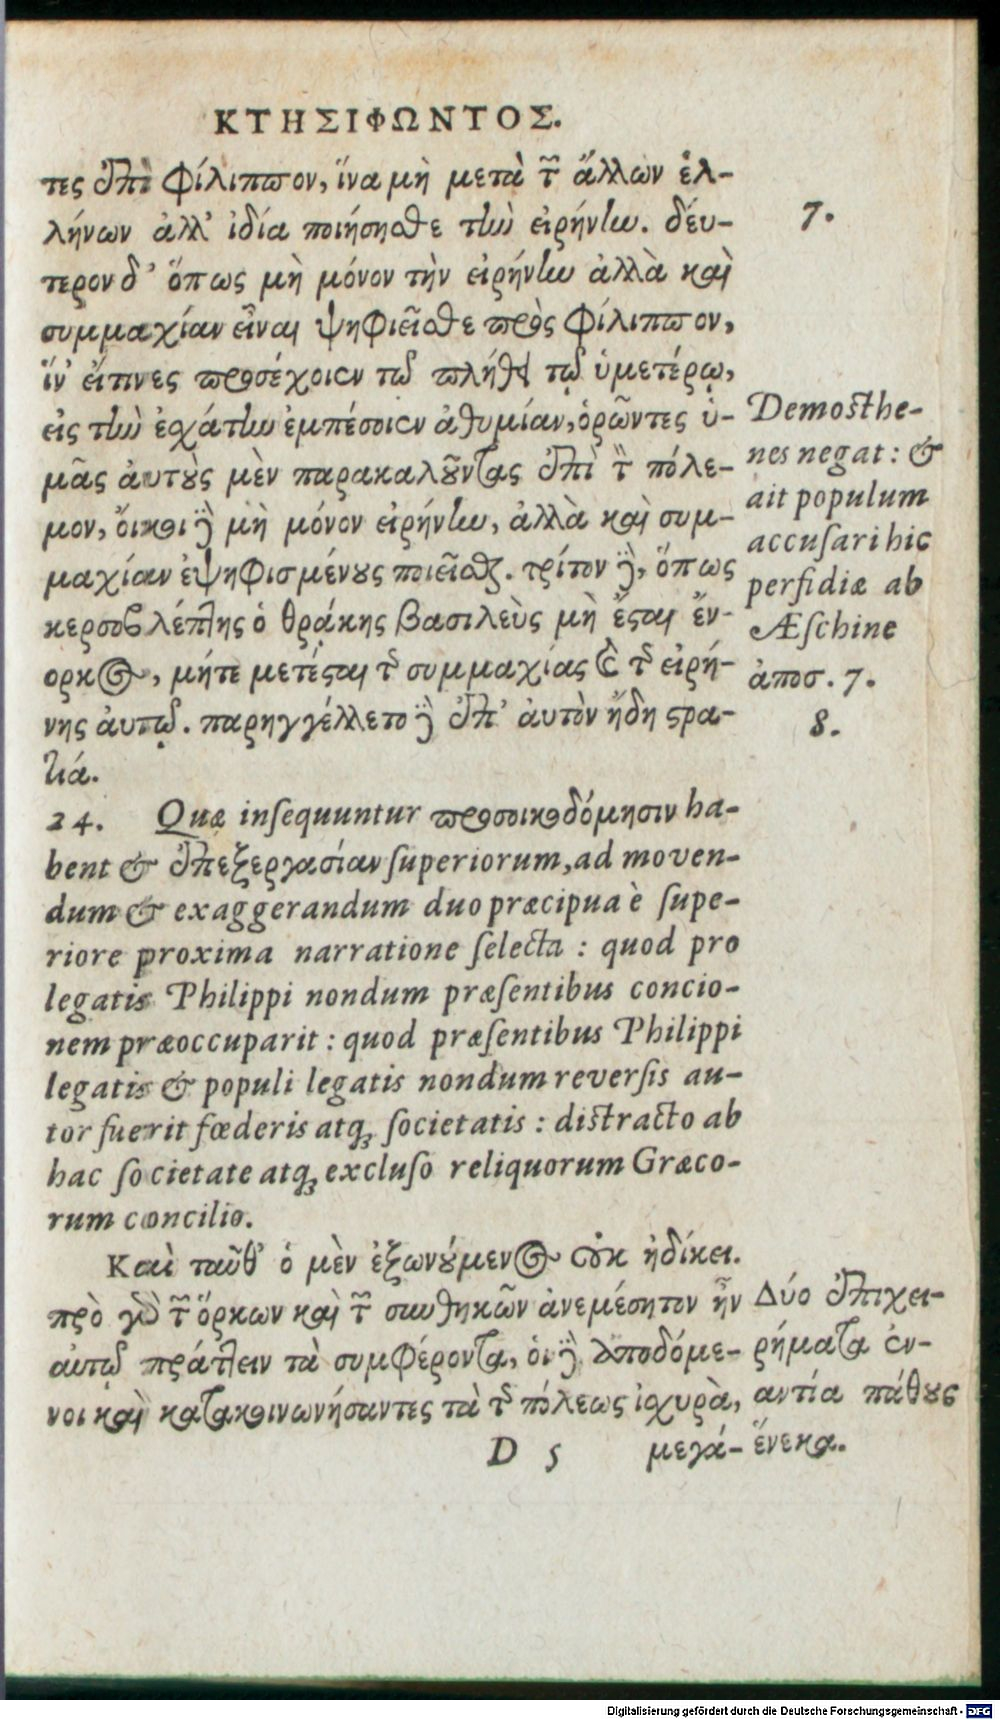 ΚΤΗΣΙΦΩΝΤΟΣ.
τες ἐπὶ Φίλιππον, ἵνα μὴ μετὰ τῶν ἄλλων ἑλ-
λήνων ἀλλ' ἰδίᾳ ποιήσησθε τὴν εἰρήνην. δεύ-
τερον δ' ὅπως μὴ μόνον τὴν εἰρήνην ἀλλὰ καὶ
συμμαχίαν εἶναι ψηφιεῖσθε πρὸς Φίλιππον,
ἵν' εἴ τινες προσέχοιεν τῷ πλήθει τῷ ὑμετέρῳ,
εἰς τὴν ἐσχάτην ἐμπέσοιεν ἀθυμίαν, ὁρῶντες ὑ-
μᾶς αὐτοὺς μὲν παρακαλοῦντας ἐπὶ τὸν πόλε-
μον, οἴκοι δὲ μὴ μόνον εἰρήνην, ἀλλὰ καὶ συμ-
μαχίαν ἐψηφισμένους ποιεῖσθαι. τρίτον δὲ, ὅπως
κερσοβλέπτης ὁ θράκης βασιλεὺς μὴ ἔσται ἔν-
ορκος, μήτε μετέσται τῆς συμμαχίας καὶ τῆς εἰρή-
νης αὐτῷ. παρηγγέλλετο δὲ ἐπ' αὐτὸν ἤδη στρα-
τιά.
24. Quæ insequuntur προσοικοδόμησιν ha-
bent & ἐπεξεργασίαν superiorum, ad moven-
dum & exaggerandum duo præcipua è supe-
riore proxima narratione selecta : quod pro
legatis Philippi nondum præsentibus concio-
nem præoccuparit : quod præsentibus Philippi
legatis & populi legatis nondum reversis au-
tor fuerit fœderis atq; societatis : distracto ab
hac societate atq; excluso reliquorum Græco-
rum concilio.
Καὶ ταῦθ' ὁ μὲν ἐξωνούμενος οὐκ ἠδίκει.
πρὸ γὰρ τῶν ὅρκων καὶ τῶν συνθηκῶν ἀνεμέσητον ἦν
αὐτῷ πράττειν τὰ συμφέροντα, οἱ δὲ ἀποδόμε-
νοι καὶ κατακοινωνήσαντες τὰ τῆς πόλεως ἰσχυρὰ,
D 5 μεγά-
7.
Demosthe-
nes negat : &
ait populum
accusari hic
perfidiæ ab
Æschine
ἀποσ. 7.
8.
Δύο ἐπιχει-
ρήματα ἐν-
αντία πάθους
ἕνεκα.
Digitalisierung gefördert durch die Deutsche Forschungsgemeinschaft - DFG